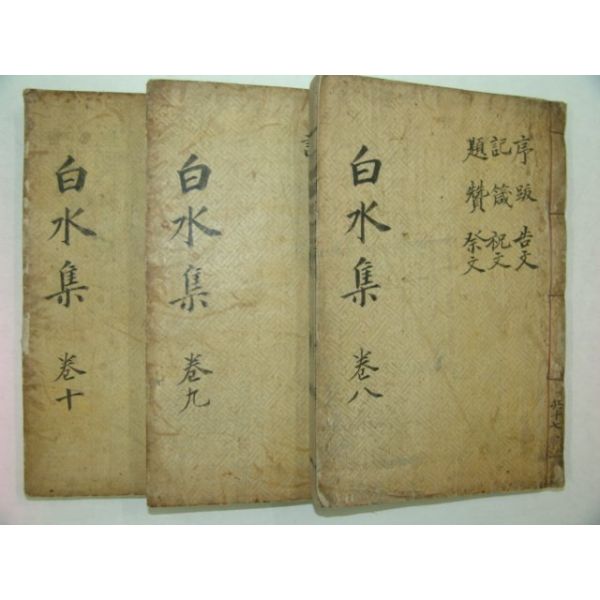 序 跋 告文
記 箴 祝文
題 贊 祭文
白水集 卷八
共十七
白水集 卷九
白水集 卷十